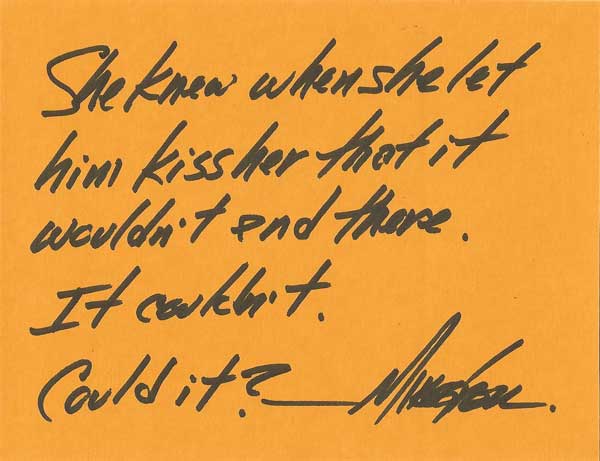 She knew when she let
him kiss her that it
wouldn't end there.
It couldn't.
Could it?